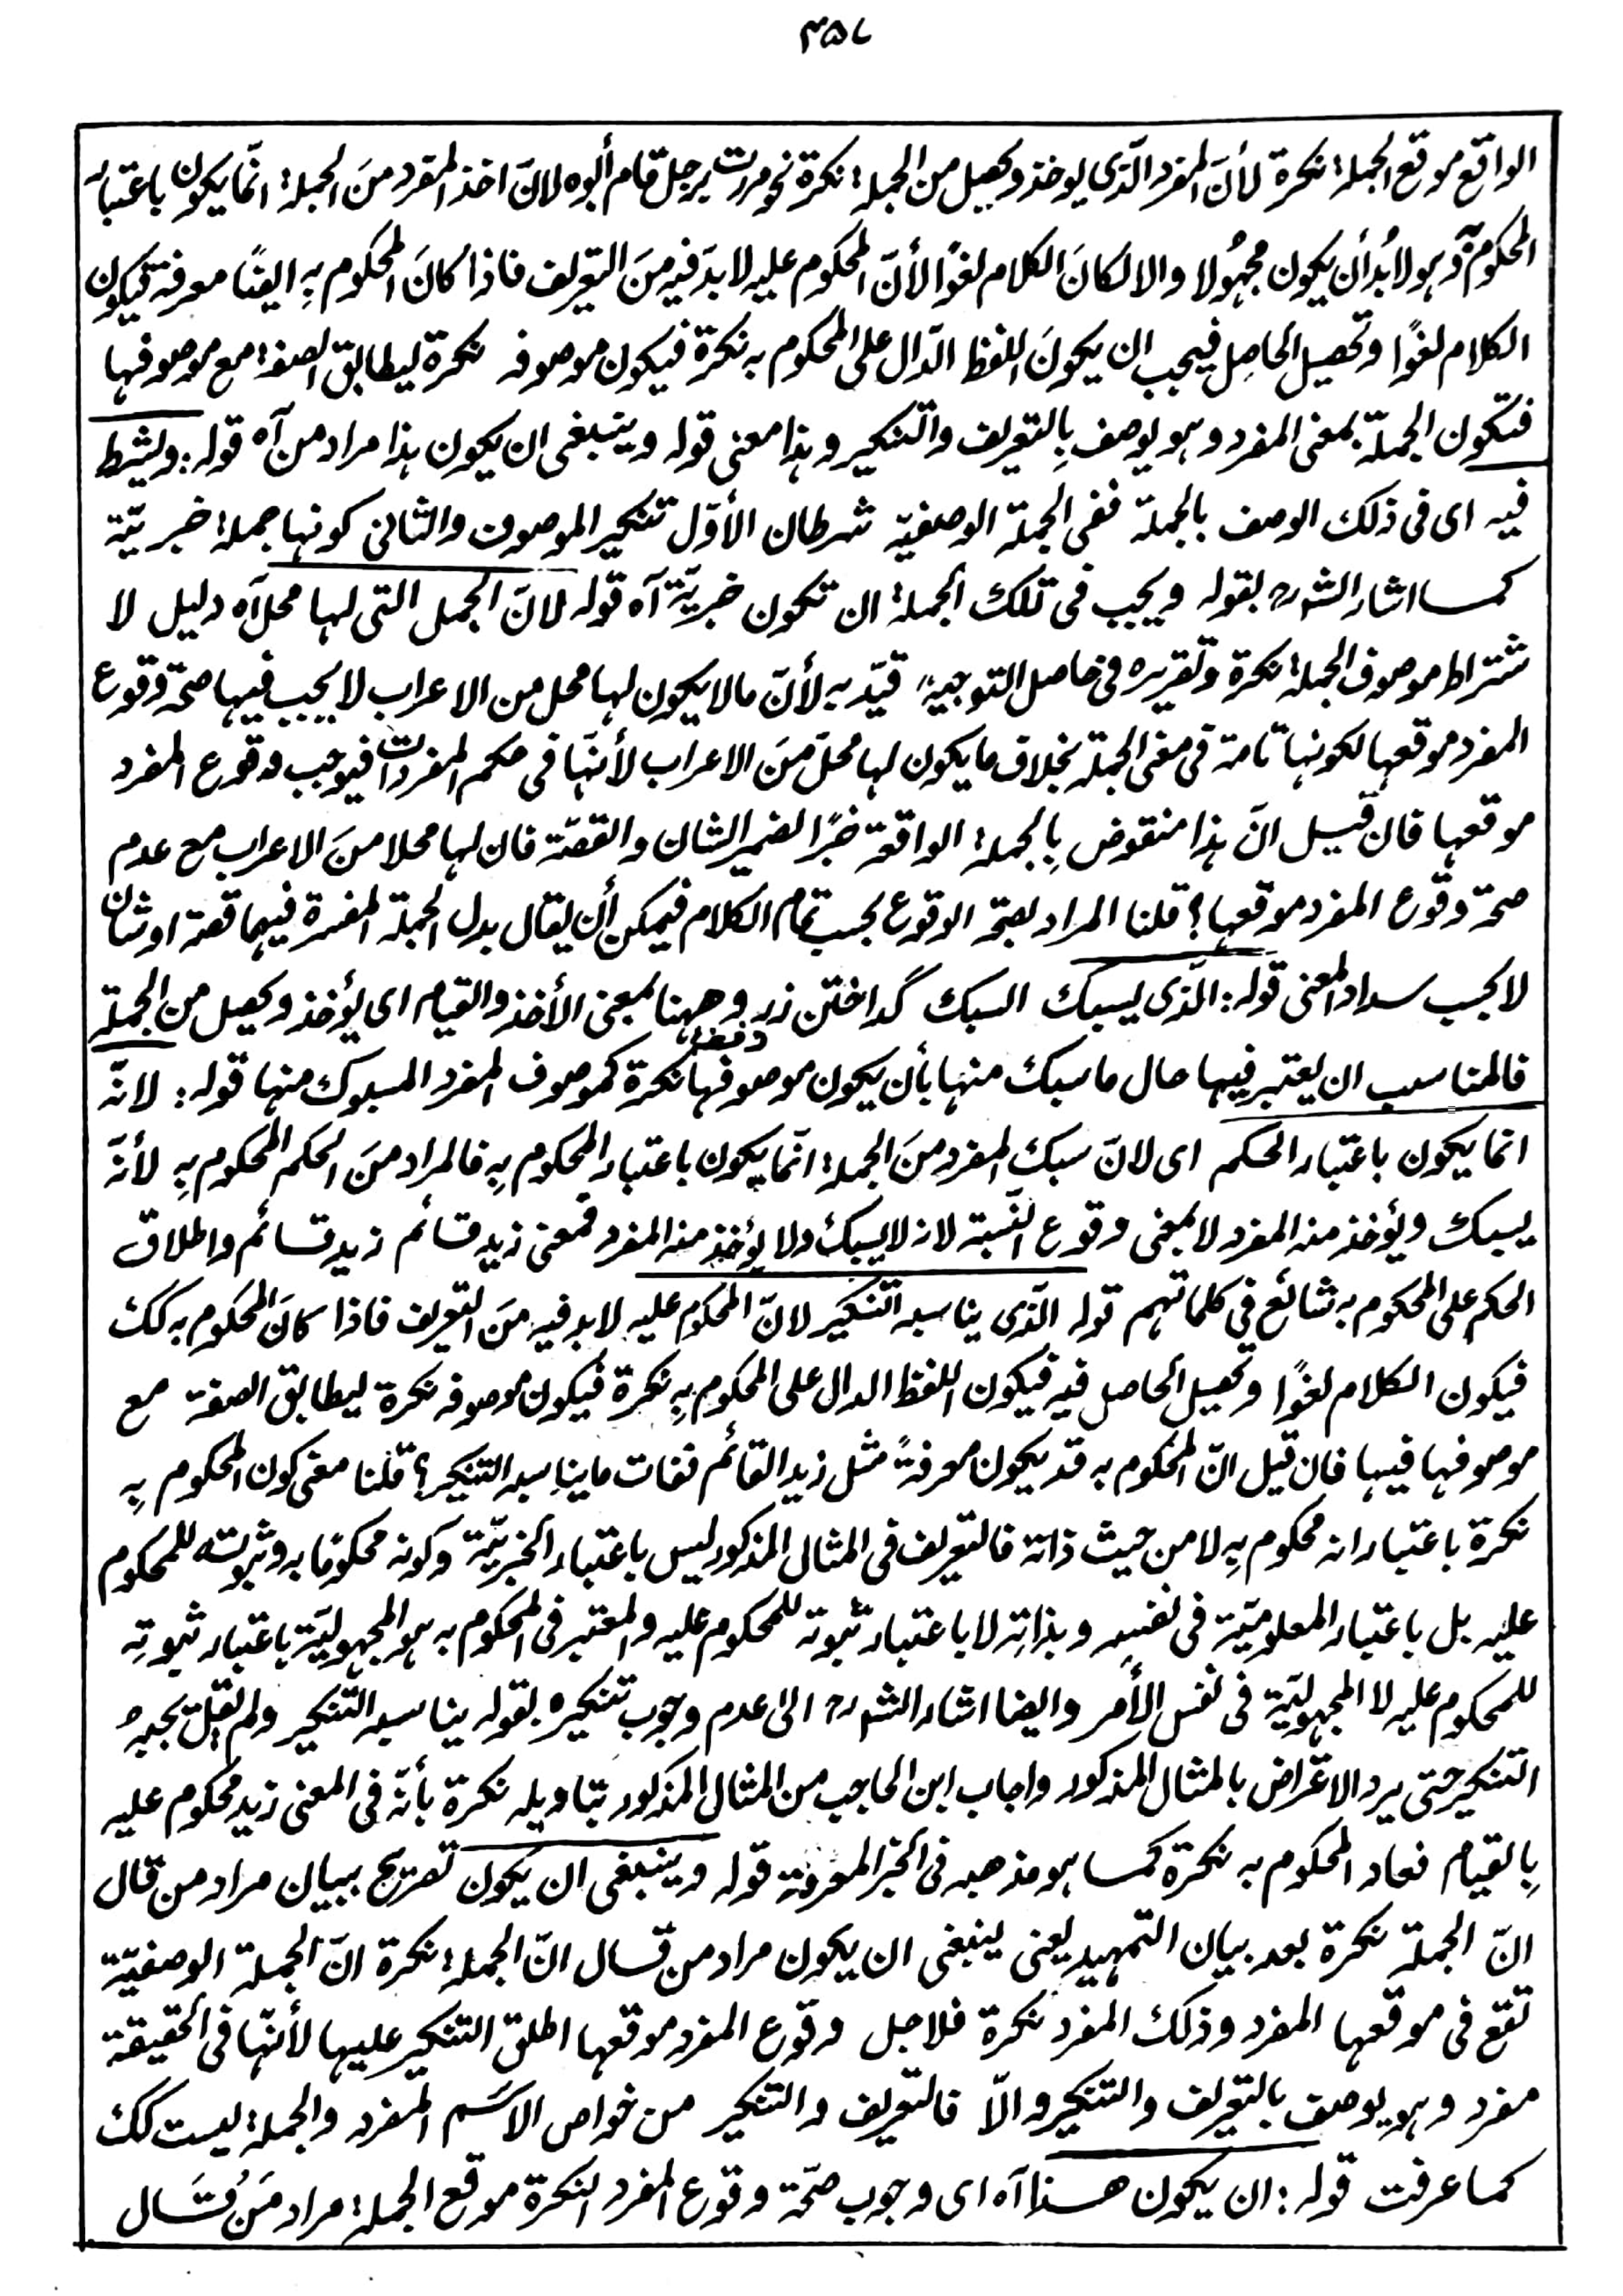 ٣٥٧
الواقع موقع الجملة نكرة لأنّ المفرد الّذى يوخذ ويحصل من الجملة نكرة نحو مررت برجل قام أبوه لانّ اخذ المفرد منَ الجملة انّما يكون باعتبار
المحكوم به وهو لابُد أن يكون مجهُولا والا لكانَ الكلام لغوًا لأنّ المحكوم عليه لا بدّ فيه منَ التعريف فاذا كانَ المحكوم بِه ايضًا معرفة فيكون
الكلام لغوًا وتحصيل الحاصِل فيجب ان يكونَ اللفظ الدّال على المحكوم به نكرة فيكون موصوفه نكرة ليطابق الصفة مع موصوفها
فتكون الجملة بمعنى المفرد وهو يوصف بِالتعريف والتنكير وهذا معنى قوله وينبغى ان يكون هذا مراد من آه قوله: ويشترط
فيه اى فى ذلك الوصف بالجملة ففى الجملة الوصفيّة شرطان الأوّل تنكير الموصوف والثانى كونها جملة خبريّة
كما اشار الشورح بقوله ويجب فى تلك الجملة ان تكون خبريّة آه قوله لانّ الجمل التى لها محل آه دليل لا
شتراط موصوف الجملة نكرة وتقريره فى حاصل التوجيه قيّد به لأنّ مالا يكون لها محل من الاعراب لا يجب فيها صحّة وقوع
المفرد موقعها لكونها تامة فى معنى الجملة بخلاف ما يكون لها محلّ منَ الاعراب لأنهّا فى حكم المفردات فيوجب وقوع المفرد
موقعها فان قيل انّ هذا منقوض بِالجملة الواقعة خبرًا لضمير الشان والقصّة فان لها محلا منَ الاعراب مع عدم
صحة وقوع المفرد موقعها؟ قلنا المراد بصحّة الوقوع بحسب تمام الكلام فيمكن أن يقال بدل الجملة المفسرة فيهما قصة او شان
لا بحسب سداد المعنى قوله: الّذى يسبك السبك گداختن زر وههنا بمعنى الأخذ والقيام اى يؤخذ ويحصل من الجملة
فالمناسب ان يعتبر فيها حال ما سبك منها بأن يكون موصوفها نكرة كموصوف المفرد المسبوك منها قوله: لانّه
انما يكون باعتبار الحكم اى لانّ سبك المفرد منَ الجملة انّما يكون باعتبار المحكوم بِه فالمراد منَ الحكم المحكوم بِه لأنّه
يسبك ويؤخذ منه المفرد لا بمعنى وقوع النّسبة لانه لا يسبك ولا يؤخذ منه المفرد فمعنى زيد قائم زيد قائم واطلاق
الحكم على المحكوم به شائع في كلماتهم قوله الّذى يناسبه التنكير لانّ المحكوم عليه لا بد فيه منَ التعريف فاذا كانَ المحكوم به كك
فيكون الكلام لغوًا وتحصيل الحاصل فيه فيكون اللفظ الدال على المحكوم بِه نكرة فيكون موصوفه نكرة ليطابق الصفة مع
موصوفها فيها فان قيل انّ المحكوم به قد يكون معرفةً مثل زيد القائم ففات ما يناسبه التنكير؟ قلنا معنى كون المحكوم بِه
نكرة باعتبار انه محكوم بِه لا من حيث ذاته فالتعريف فى المثال المذكور ليس باعتبار الخبريّة وكونه محكومًا به وثبوته للمحكوم
عليه بل باعتبار المعلوميّة فى نفسِه وبذاتِه لا باعتبار ثبوته للمحكوم عليه والمعتبر فى المحكوم به هو المجهوليّة باعتبار ثبوتِه
للمحكوم عليه لا المجهوليّة فى نفس الأمر وايضا اشار الشورح الى عدم وجوب تنكيره بقوله يناسبه التنكير ولم يقل يجبه
التنكير حتى يرد الاعتراض بالمثال المذكور واجاب ابن الحاجب من المثال المذكور بتاويله نكرة بأنّه فى المعنى زيد محكوم عليه
بِالقيام فعاد المحكوم به نكرة كما هو مذهبه فى الخبر المعرفة قوله وينبغى ان يكون تصريح ببيان مراد من قال
انّ الجملة نكرة بعد بيان التمهيد يعنى ينبغى ان يكون مراد من قال انّ الجملة نكرة انّ الجملة الوصفيّة
تقع فى موقعها المفرد وذلك المفرد نكرة فلاجل وقوع المفرد موقعها اطلق التنكير عليها لأنهّا فى الحقيقة
مفرد وهو يوصف بالتعريف والتنكير والّا فالتعريف والتنكير من خواص الاسم المفرد والجملة ليست كك
كما عرفت قوله: ان يكون هذا آه اى وجوب صحّة وقوع المفرد النكرة موقع الجملة مراد مَن قَال